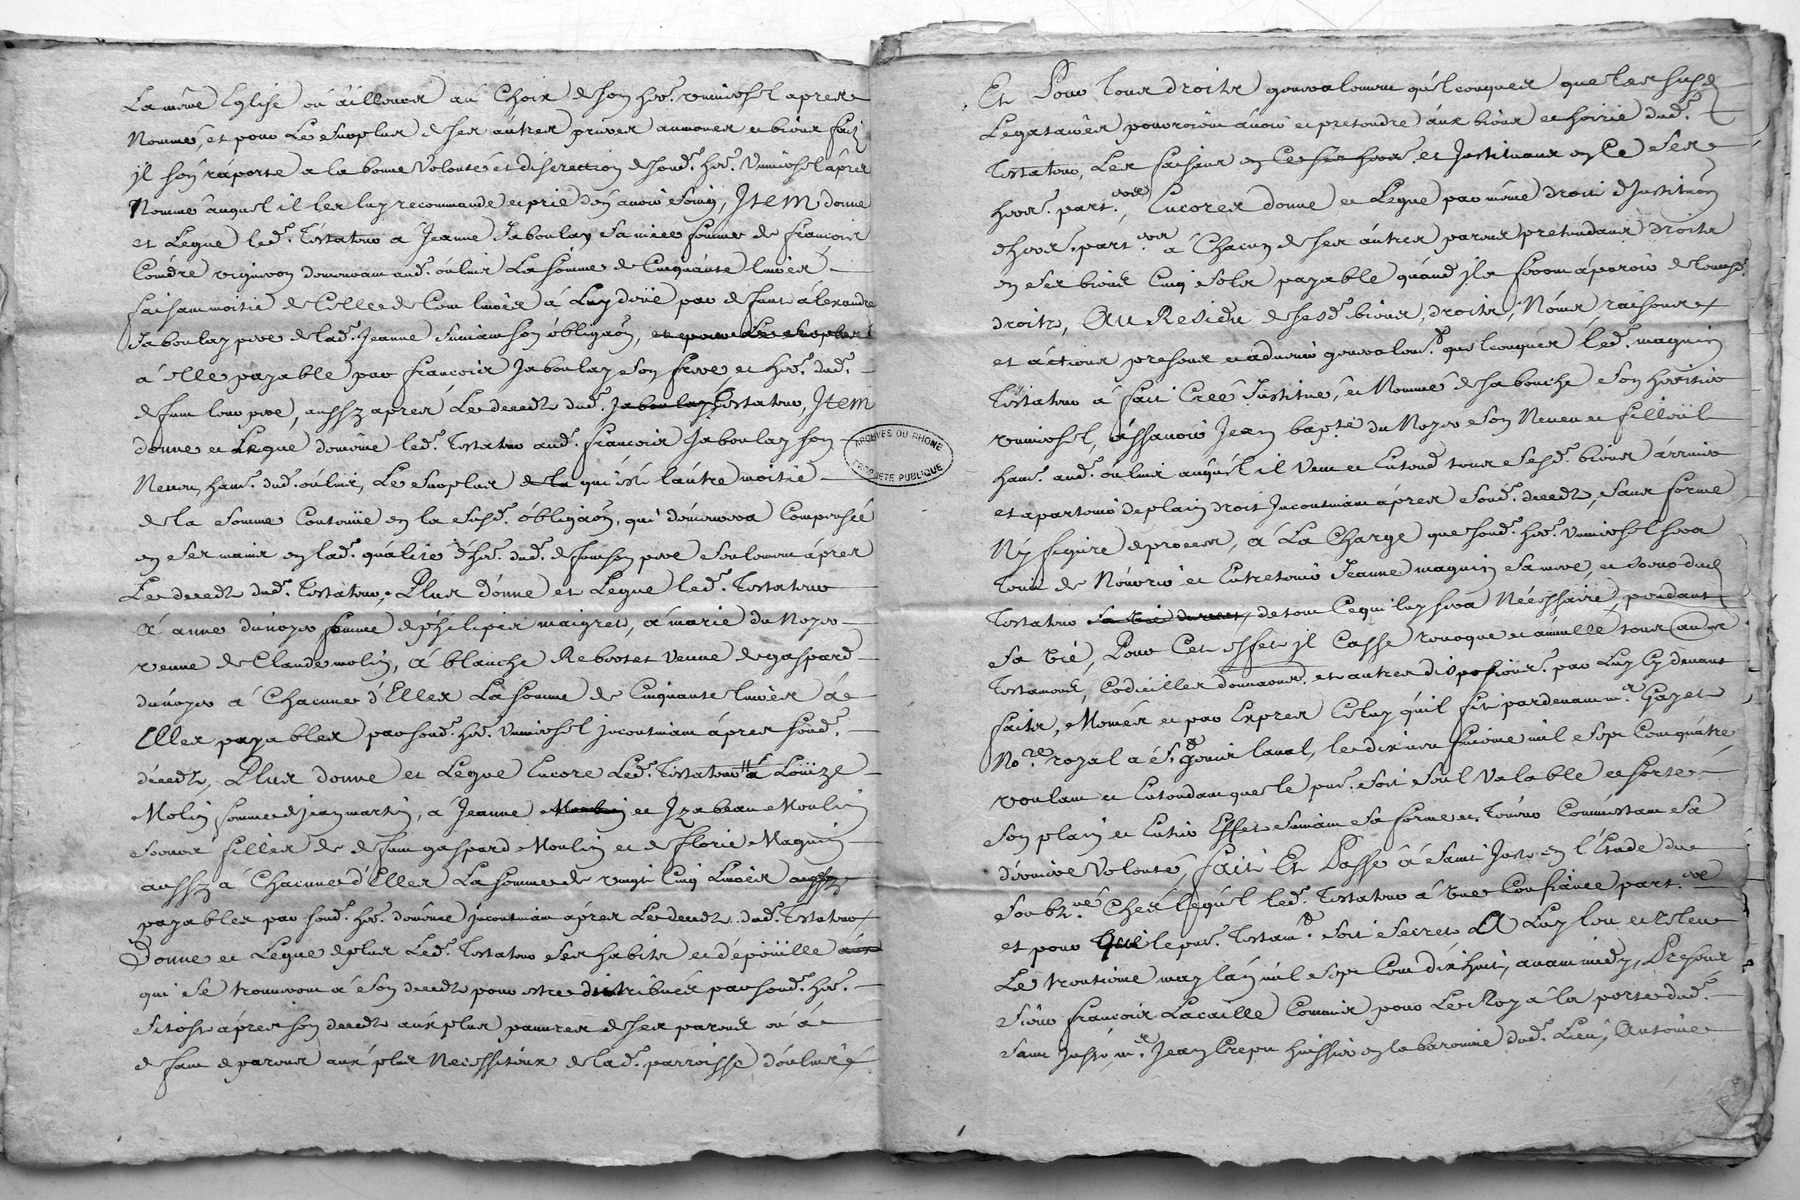 La même Eglise ou ailleurs au Choix de son her. universel apres
Nommé, et pour Le surplus de ses autres prieres aumones et biens faits
il s'en raporte a la bonne Volonté et discrettion de sond. her. Universel apres
Nommé auquel il les luy recommande et prie d'en avoir soing, Item donne
et Legue led. Testateur a Jeanne Jaboulay sa niece femme de françois
Coindre vigneron demeurant aud. oulins La somme de Cinquante livres
faisant moitié de Celle de Cent livres a Luy deüe par defunt alexandre
Jaboulay pere de lad. Jeanne suivant son obligaôn, et pour Le surplus
a elle payable par françois Jaboulay son frere et her. dud.
defunt leur pere, aussy apres Le deceds dud. Jaboulay Testateur, Item
donne et Legue de même led. Testateur aud. françois Jaboulay son
Neveu, hant. dud. oulins, Le surplus de la qui est l'autre moitié
de la somme Contenüe en la susd. obligaôn, qui demeurera Compensée
en ses mains en lad. qualité d'her. dud. defunt son pere seulement apres
Le deceds dud. Testateur. Plus donne et Legue led. Testateur
a anne dunoyer femme de philipes maigret, a marie du Noyer
veuve de Claude molin, a blanche Rebrotet veuve de gaspard
dunoyer a Chacune d'Elles La somme de Cinquante livres a
Elles payables par sond. her. Universel incontinant apres sond.
deceds, Plus donne et Legue Encore Led. Testateur a Loüize
Molin femme de jean martin, a Jeanne Moulin et Izabeau Moulin
soeurs filles de defunt gaspard Moulin et de florie Magnin
aussy a Chacune d'Elles La somme de vingt Cinq Livres aussy
payables par sond. her. de même incontinant apres Le deceds dud. Testateur
Donne et Legue de plus Led. Testateur ses habits et dépoüille aux
qui se trouveront a son deceds pour estre distribués par sond. her.
sitost apres son deceds aux plus pauvres de ses parens ou a
defaut de parens aux plus Necessiteux de lad. parroisse d'oulins
Et Pour tous droits generalement quelconques que les susd.
Legataires pourroient avoir et pretendre aux biens et hoirie dud.
Testateur, Les faisant en Ce ses heers. et Instituant en Ce ses
heers. part.eres, Encores donne et Legue par même droit d'Institution
d'heers. part.eres a Chacun de ses autres parens pretendants droits
en ses biens Cinq sols payable quand ils feront aparoir de leursd.
droits, AU Residu de sesd. biens, droits, Noms, raisons
et actions presens et advenir generalem.t quelconques led. magnin
Testateur a fait Creé Institué, et Nommé de sa bouche son heritier
universel, assavoir Jean bapte. du Noyer son Neveu et filleüil
hant. aud. oulins auquel il Veut et Entend tous sesd. biens arriver
et apartenir de plain droit Incontinant apres sond. deceds, sans forme
Ny figure de proces, a La Charge que sond. her. Universel sera
Tenu de Nourrir et Entretenir Jeanne magnin sa mere, et soeur dud.
Testateur sa vie durant, de tout Ce qui luy sera Nécessaire, pendant
sa vie, Pour Cet effet il Casse revoque et annulle tous autres
Testaments, Codicilles donnaons. et autres dispositions. par Luy Cy devant
faits, Només et par Expres Celuy qu'il fit pardevant m.e Gayet
No.re royal a S.t genis laval, le dix neufvieme mil sept Cent quatre
voulant et Entendant que le pnt. soit seul Valable et sorte
son plain et Entier Effet suivant sa forme et Teneur Comme estant sa
derniere Volonté, fait Et Passé a Saint Just en l'Etude du
soubz.né Chés lequel led. Testateur a une Confiance part.ere
et pour que le pnt. Testam.t soit secret A Luy leu et releu
Le trentieme may l'an mil sept Cent dix huit, avant midy, Presens
sieur françois Lacaille Commis pour Le Roy a la porte dud.
saint Just, m.e Jean Crepu huissier en la baronnie dud. Lieu, Antoine
ARCHIVES DU RHONE
PROPRIETE PUBLIQUE